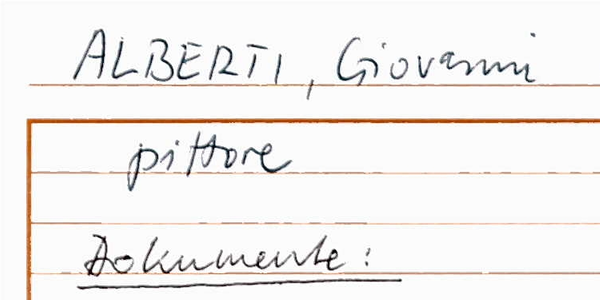 ALBERTI, Giovanni
pittore
Dokumente: